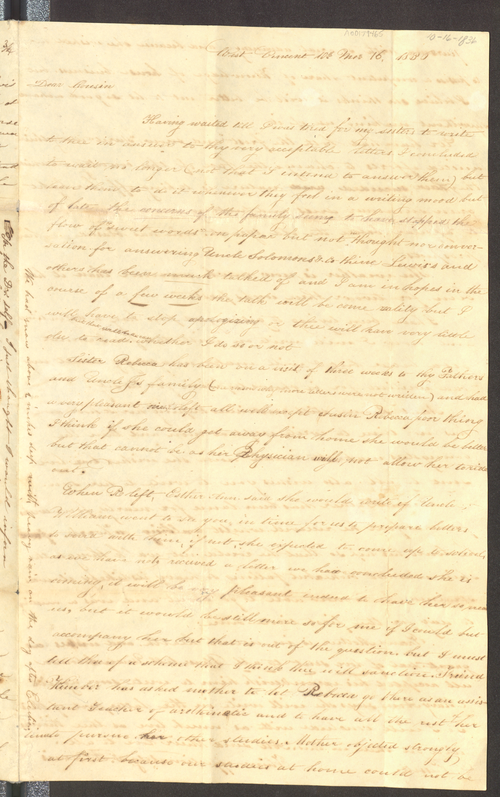 10-16-1836
Mo 16, 1836
Dear Cousin
Having waited till I was tired for my sisters to write
to thee in answer to thy very acceptable letters I concluded
to wait no longer (not that I intend to answer them) but
leave them to do it whenever they feel in a writing mood but
of late the concerns of the family seem to have stopped the
flow of sweet words on paper but not thought nor conver-
sation for answering Uncle Solomons & thine Lewis's and
others has been much talked of and I am in hopes in the
course of a few weeks the talk will be some reality but I
will have to stop apologizing or thee will have very little
else to read whether I do so or not
Sister Rebecca has been on a visit of three weeks to thy Fathers
and Uncle J's family ( were not written) and had
a very pleasant visit left all well except Cousin Rebecca poor thing
I think if she could get away from home she would be better
but that cannot be as her Physician will not allow her to ride
out.
When R left, Esther Ann said she would write if Uncle
William went to see you, in time for us to prepare letters
to send with them if not, she expected to come up to school,
as we have not received a letter we have concluded she is
coming, it will be very pleasant indeed to have her near
us, but it would be still more so for me if I could but
accompany her but that is out of the question but I must
tell thee of a scheme that I think thee will sanction. Friend
has asked mother to let Rebecca go there as an assis-
tant Teacher of arithmetic and to have all the rest of her
time to pursue her other studies. Mother objected strongly
at first because our studies at home could not be
We had snow about 6 inches deep with heavy rain on the day after Election
I just thought I would inform